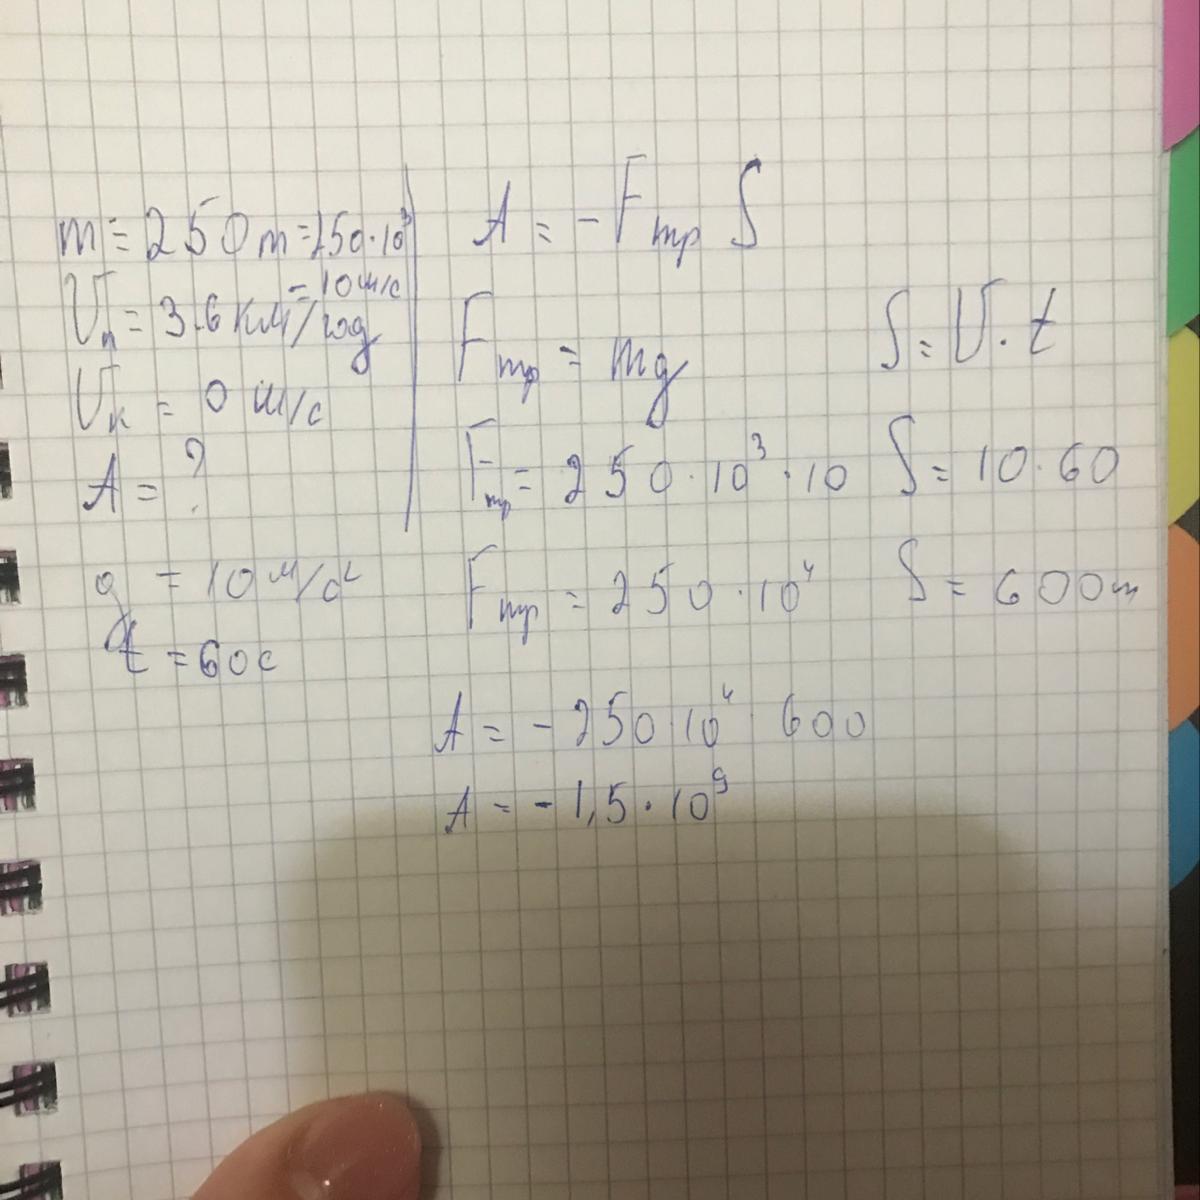 m = 250 т = 250·10³
Vп = 36 км/год = 10 м/с
Vк = 0 м/с
A = ?
g = 10 м/с²
t = 60 с
A = - Fтр S
Fтр = mg
Fтр = 250·10³·10
Fтр = 250·10⁴
S = V·t
S = 10·60
S = 600 m
A = - 250·10⁴·600
A = - 1,5·10⁹